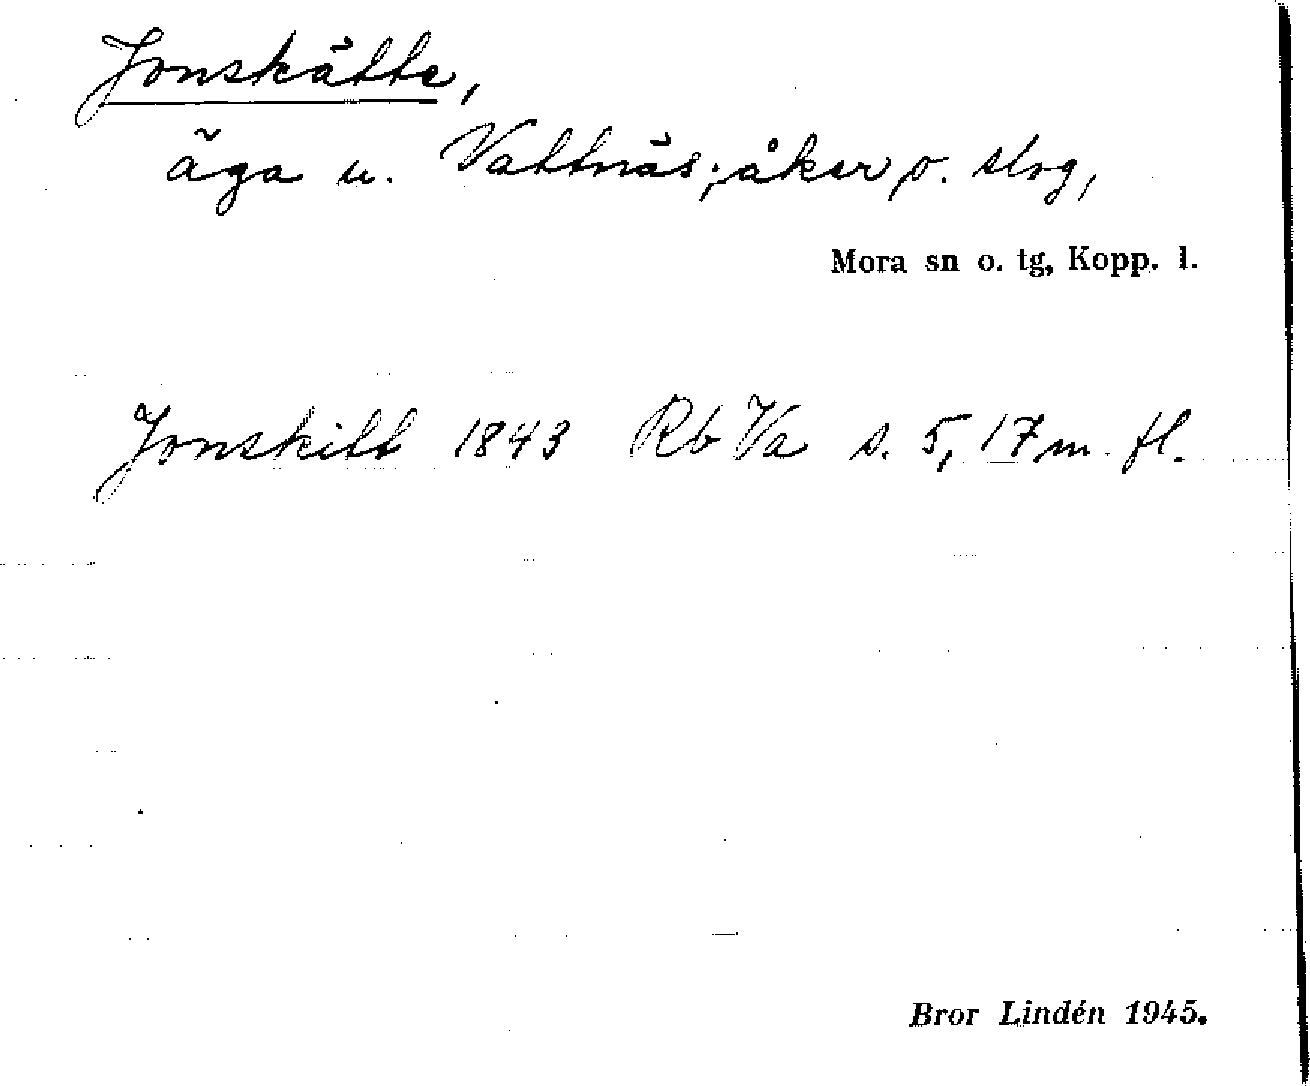 Jonskätte,
äga u. Vattnäs; åker o. slog,
Mora sn o. tg, Kopp. l.
Jonskitt 1843 Rb Va s. 5, 17 m. fl.
Bror Lindén 1945.